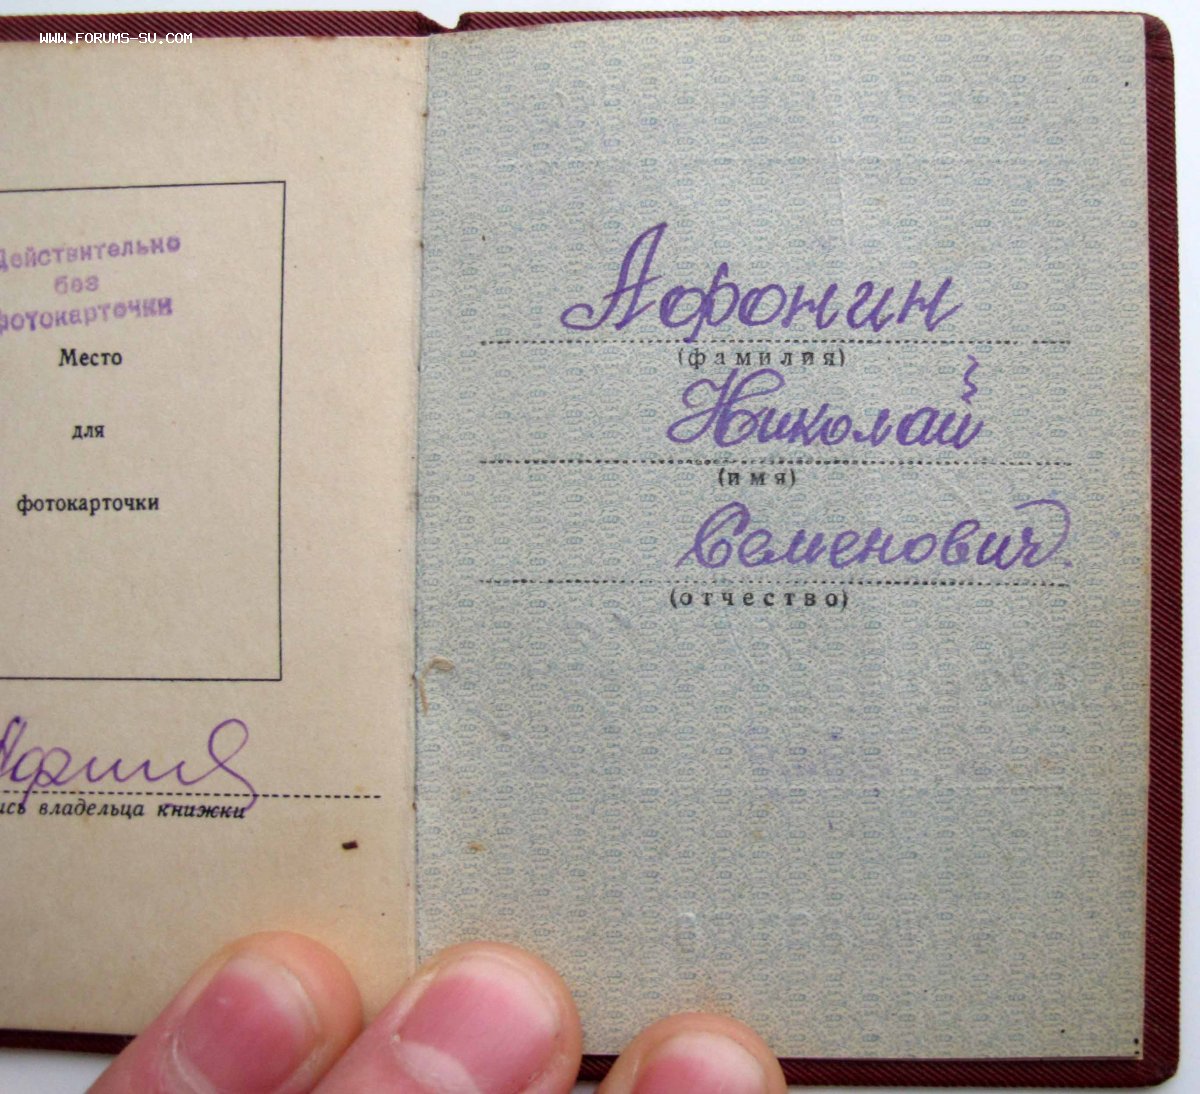 www.forums-su.com
Действительно
без
фотокарточки
Место
для
фотокарточки
владельца книжки
Афонин
(фамилия)
Николай
(имя)
Семенович
(отчество)